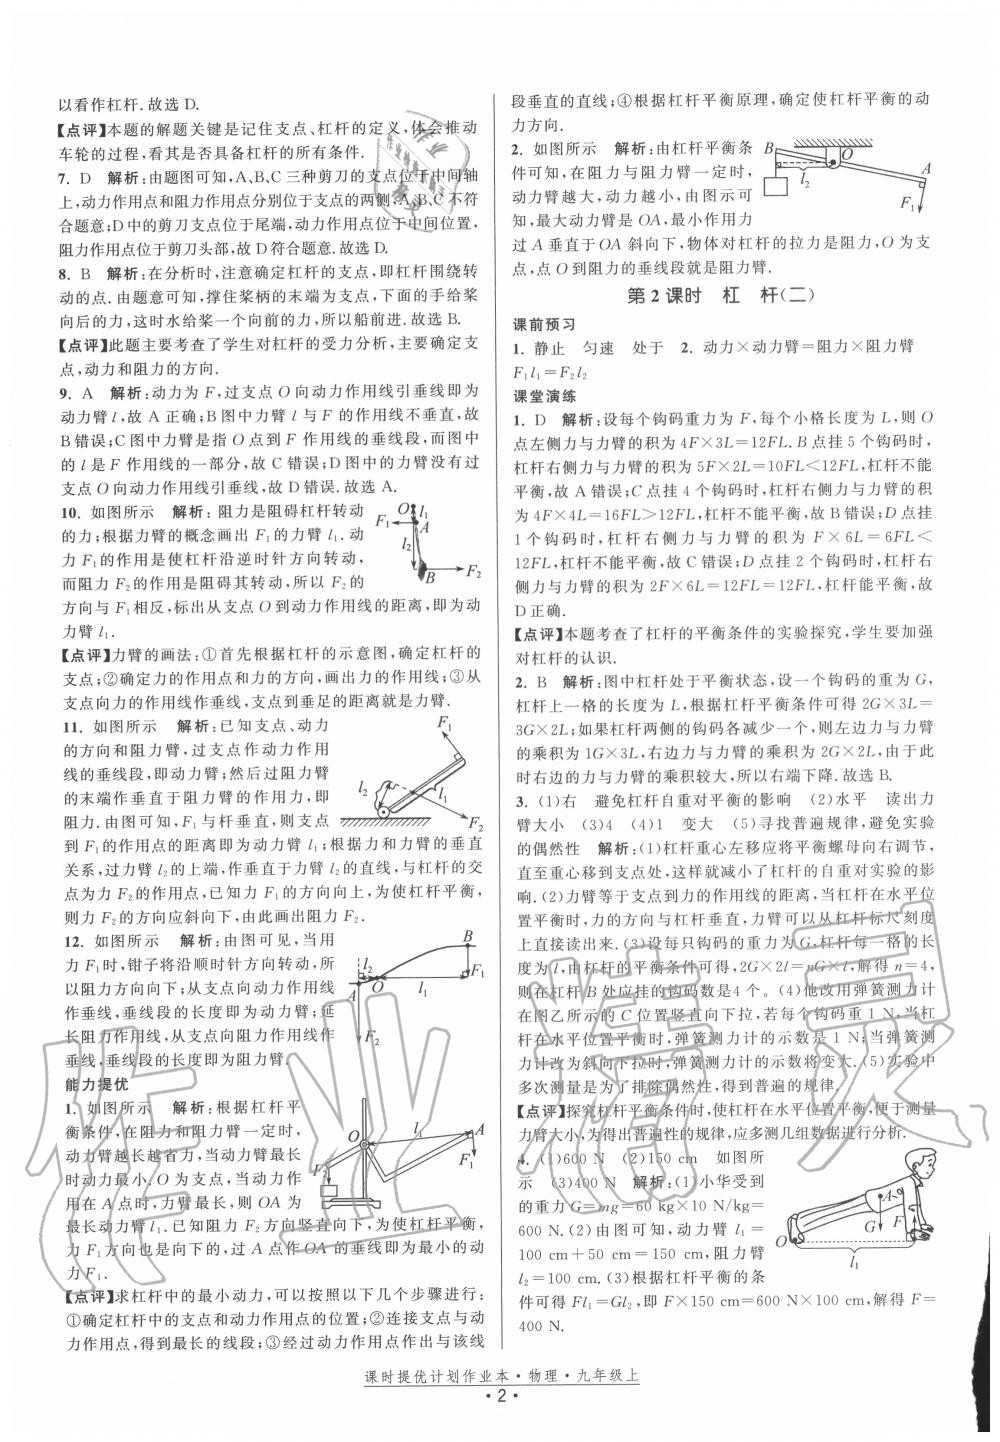 以看作杠杆.故选 D.
【点评】本题的解题关键是记住支点、杠杆的定义,体会推动
车轮的过程,看其是否具备杠杆的所有条件.
7. D 解析:由题图可知,A、B、C 三种剪刀的支点位于中间轴
上,动力作用点和阻力作用点分别位于支点的两侧,A、B、C 不符
合题意;D 中的剪刀支点位于尾端,动力作用点位于中间位置,
阻力作用点位于剪刀头部,故 D 符合题意.故选 D.
8. B 解析:在分析时,注意确定杠杆的支点,即杠杆围绕转
动的点.由题意可知,撑住桨柄的末端为支点,下面的手给桨
向后的力,这时水给桨一个向前的力,所以船前进.故选 B.
【点评】此题主要考查了学生对杠杆的受力分析,主要确定支
点,动力和阻力的方向.
9. A 解析:动力为 F,过支点 O 向动力作用线引垂线即为
动力臂 l,故 A 正确;B 图中力臂 l 与 F 的作用线不垂直,故
B 错误;C 图中力臂是指 O 点到 F 作用线的垂线段,而图中
的 l 是 F 作用线的一部分,故 C 错误;D 图中的力臂没有过
支点 O 向动力作用线引垂线,故 D 错误.故选 A.
10. 如图所示 解析:阻力是阻碍杠杆转动
的力;根据力臂的概念画出 F1 的力臂 l1.动
力 F1 的作用是使杠杆沿逆时针方向转动,
而阻力 F2 的作用是阻碍其转动,所以 F2 的
方向与 F1 相反,标出从支点 O 到动力作用线的距离,即为动
力臂 l1.
O l1 F1 A l2 B F2
【点评】力臂的画法:①首先根据杠杆的示意图,确定杠杆的
支点;②确定力的作用点和力的方向,画出力的作用线;③从
支点向力的作用线作垂线,支点到垂足的距离就是力臂.
11. 如图所示 解析:已知支点、动力
的方向和阻力臂,过支点作动力作用
线的垂线段,即动力臂;然后过阻力臂
的末端作垂直于阻力臂的作用力,即
阻力.由图可知,F1 与杆垂直,则支点
到 F1 作用点的距离即为动力臂 l1;根据力和力臂的垂直
关系,过力臂 l2 的上端,作垂直于力臂 l2 的直线,与杠杆的交
点为力 F2 的作用点,已知力 F1 的方向向上,为使杠杆平衡,
则力 F2 的方向应斜向下,由此画出阻力 F2.
F1 l2 l1 F2
12. 如图所示 解析:由图可见,当用
力 F1 时,钳子将沿顺时针方向转动,所
以阻力方向向下;从支点向动力作用线
作垂线,垂线段的长度即为动力臂;延
长阻力作用线,从支点向阻力作用线作
垂线,垂线段的长度即为阻力臂.
B l2 F1 A O l1 F2
能力提优
1. 如图所示 解析:根据杠杆平
衡条件,在阻力和阻力臂一定时,
动力臂越长越省力,当动力臂最长
时动力最小.O 为支点,当动力作
用在 A 点时,力臂最长,则 OA 为
最长动力臂 l1.已知阻力 F2 方向竖直向下,为使杠杆平衡,
力 F1 方向也是向下的,过 A 点作 OA 的垂线即为最小的动
力 F1.
O l1 A F1 F2
【点评】求杠杆中的最小动力,可以按照以下几个步骤进行:
①确定杠杆中的支点和动力作用点的位置;②连接支点与动
力作用点,得到最长的线段;③经过动力作用点作出与该线
段垂直的直线;④根据杠杆平衡原理,确定使杠杆平衡的动
力方向.
2. 如图所示 解析:由杠杆平衡条
件可知,在阻力与阻力臂一定时,
动力臂越大,动力越小,由图示可
知,最大动力臂是 OA,最小作用力
过 A 垂直于 OA 斜向下,物体对杠杆的拉力是阻力,O 为支
点,点 O 到阻力的垂线段就是阻力臂.
B O A l2 F1
第 2 课时 杠 杆(二)
课前预习
1. 静止 匀速 处于 2. 动力×动力臂=阻力×阻力臂
F1l1=F2l2
课堂演练
1. D 解析:设每个钩码重力为 F,每个小格长度为 L,则 O
点左侧力与力臂的积为 4F×3L=12FL.B 点挂 5 个钩码时,
杠杆右侧力与力臂的积为 5F×2L=10FL<12FL,杠杆不能平
衡,故 A 错误;C 点挂 4 个钩码时,杠杆右侧力与力臂的积
为 4F×4L=16FL>12FL,杠杆不能平衡,故 B 错误;D 点挂
1 个钩码时,杠杆右侧力与力臂的积为 F×6L=6FL<
12FL,杠杆不能平衡,故 C 错误;D 点挂 2 个钩码时,杠杆右
侧力与力臂的积为 2F×6L=12FL,杠杆能平衡,故
D 正确.
【点评】本题考查了杠杆的平衡条件的实验探究,学生要加强
对杠杆的认识.
2. B 解析:图中杠杆处于平衡状态,设一个钩码的重为 G,
杠杆上一格的长度为 L,根据杠杆平衡条件可得 2G×3L=
3G×2L;如果杠杆两侧的钩码各减少一个,则左边力与力臂
的乘积为 1G×3L,右边力与力臂的乘积为 2G×2L,由于此
时右边的力与力臂的乘积较大,所以右端下降.故选 B.
3. (1)右 避免杠杆自重对平衡的影响 (2)水平 读出力
臂大小 (3)4 (4)1 变大 (5)寻找普遍规律,避免实验
的偶然性 解析:(1)杠杆重心左移应将平衡螺母向右调节,
直至重心移到支点处,这样就减小了杠杆的自重对实验的影
响.(2)力臂等于支点到力的作用线的距离,当杠杆在水平位
置平衡时,力的方向与杠杆垂直,力臂可以从杠杆标尺刻度
上直接读出来.(3)设每只钩码的重力为 G,杠杆每一格的长
度为 l,由杠杆的平衡条件可得,2G×2l=nG×l,解得 n=4,
则在杠杆 B 处应挂的钩码数是 4 个。(4)他改用弹簧测力计
在图乙所示的 C 位置竖直向下拉,若每个钩码重 1 N,当杠
杆在水平位置平衡时,弹簧测力计的示数是 1 N;当弹簧测
力计改为斜向下拉时,弹簧测力计的示数将变大.(5)实验中
多次测量是为了排除偶然性,得到普遍的规律.
【点评】探究杠杆平衡条件时,使杠杆在水平位置平衡,便于测量
力臂大小,为得出普遍性的规律,应多测几组数据进行分析.
4. (1)600 N (2)150 cm 如图所
示 (3)400 N 解析:(1)小华受到
的重力 G=mg=60 kg×10 N/kg=
600 N.(2)由图可知,动力臂 l1=
100 cm+50 cm=150 cm,阻力臂
l2=100 cm.(3)根据杠杆平衡的条
件可得 Fl1=Gl2,即 F×150 cm=600 N×100 cm,解得 F=
400 N.
A O G F l1
课时提优计划作业本·物理·九年级上
·2·
作业精灵